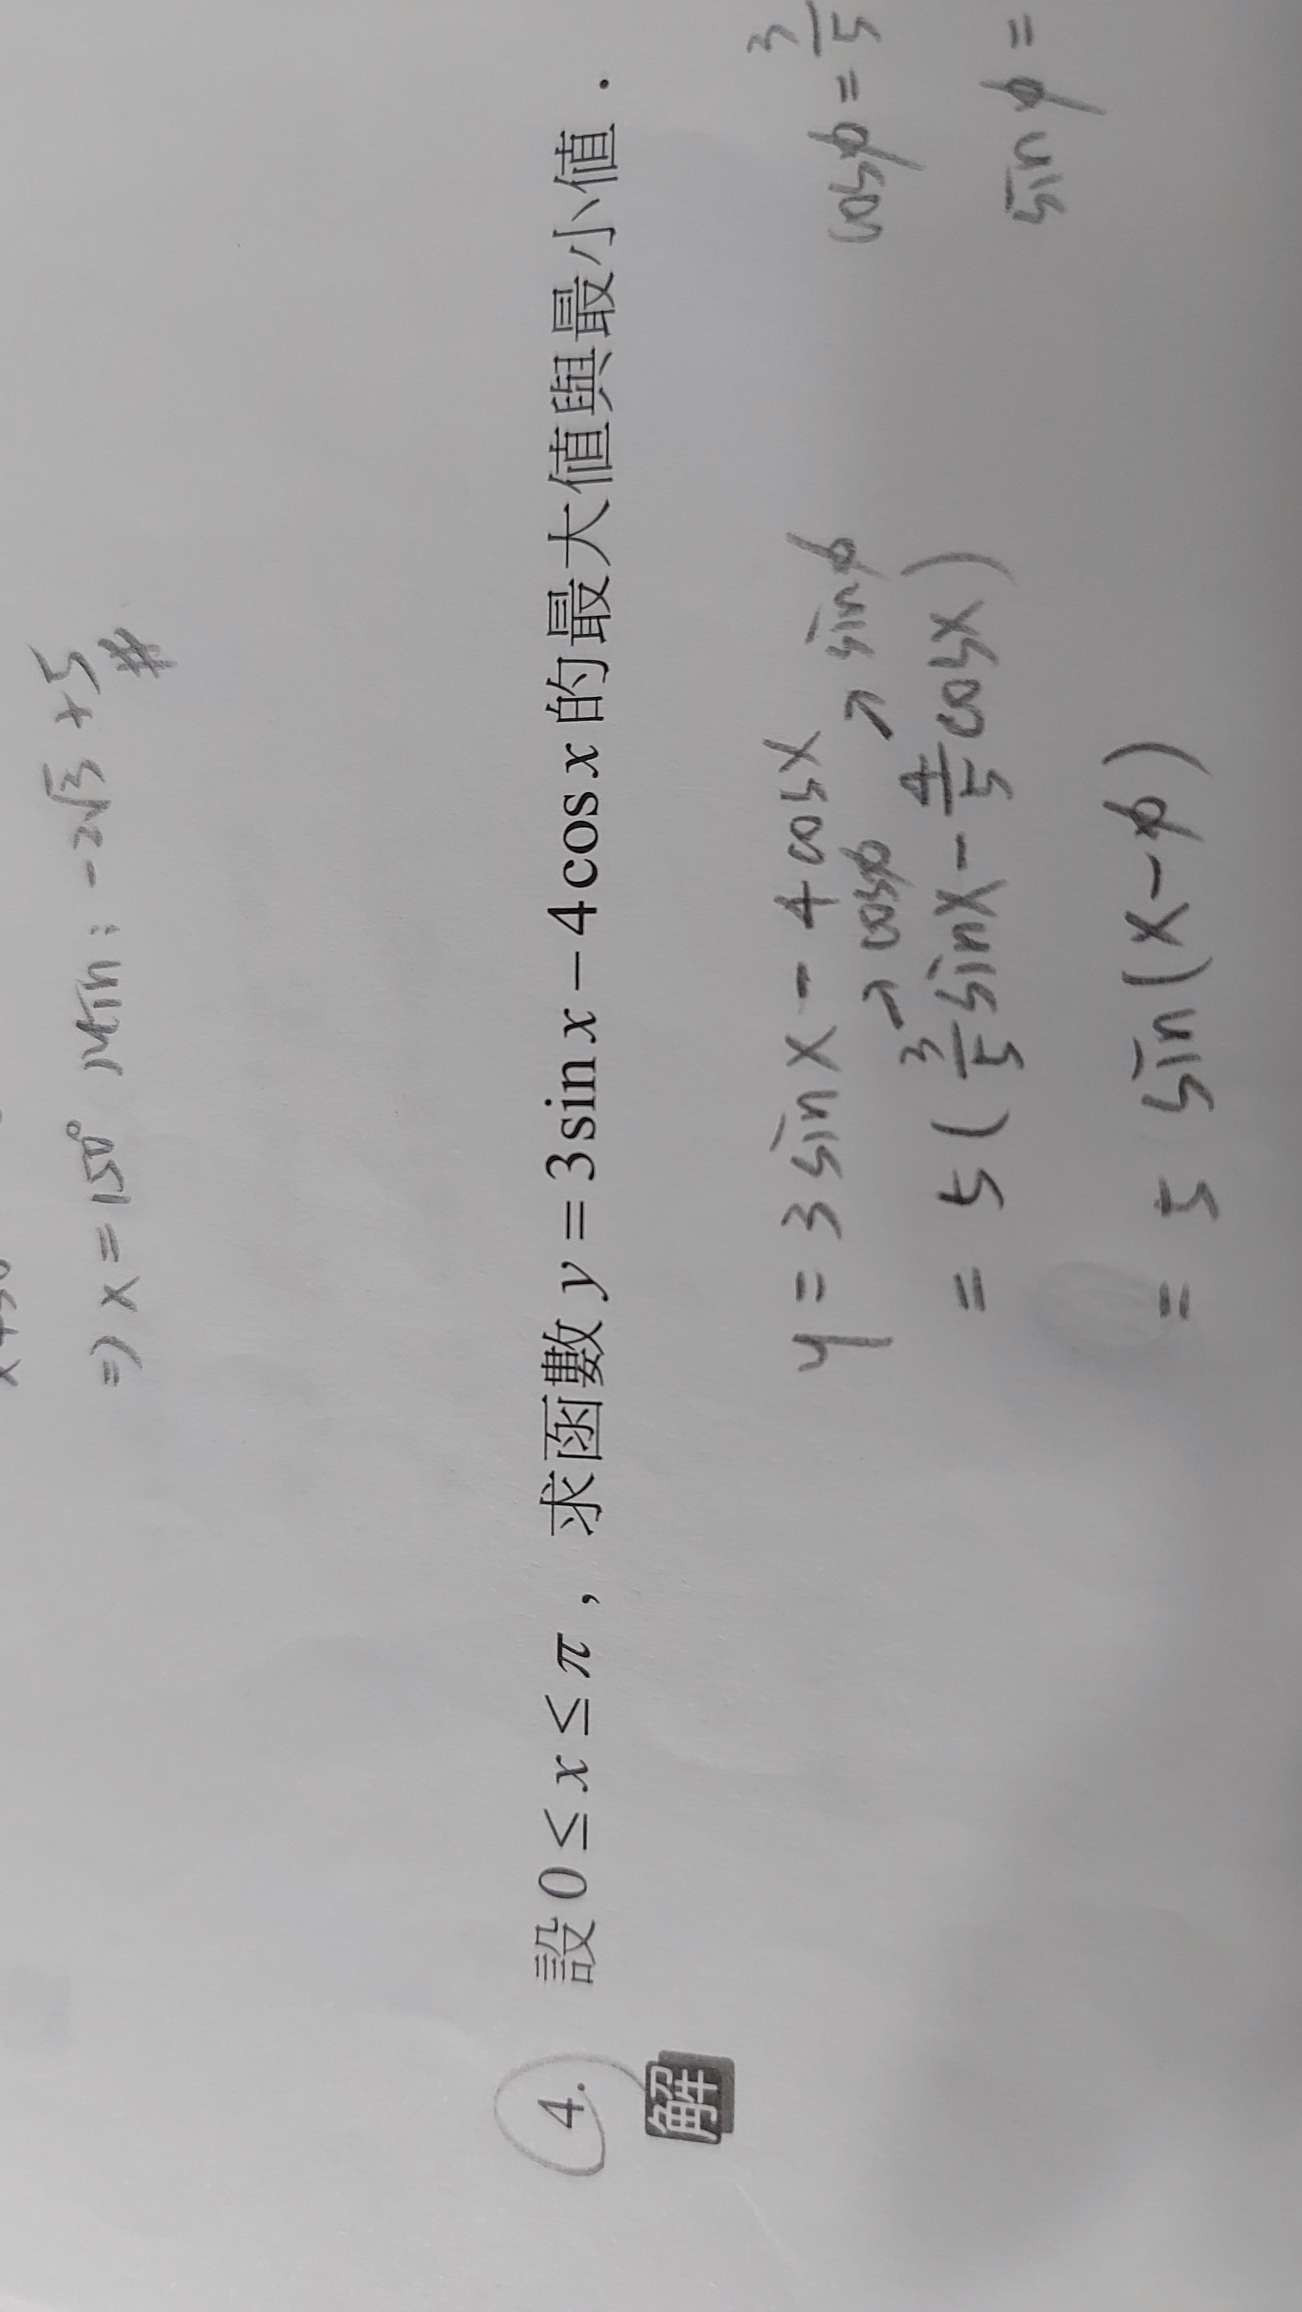 ⇒ x = 150° Min : -2√3 + 5 #
4. 設 0 ≤ x ≤ π，求函數 y = 3 sin x − 4 cos x 的最大值與最小值．
解
y = 3 sin x - 4 cos x
→ cosϕ → sinϕ
= 5 ( 3/5 sin x - 4/5 cos x )
= 5 sin ( x - ϕ )
cosϕ = 3/5
sinϕ =